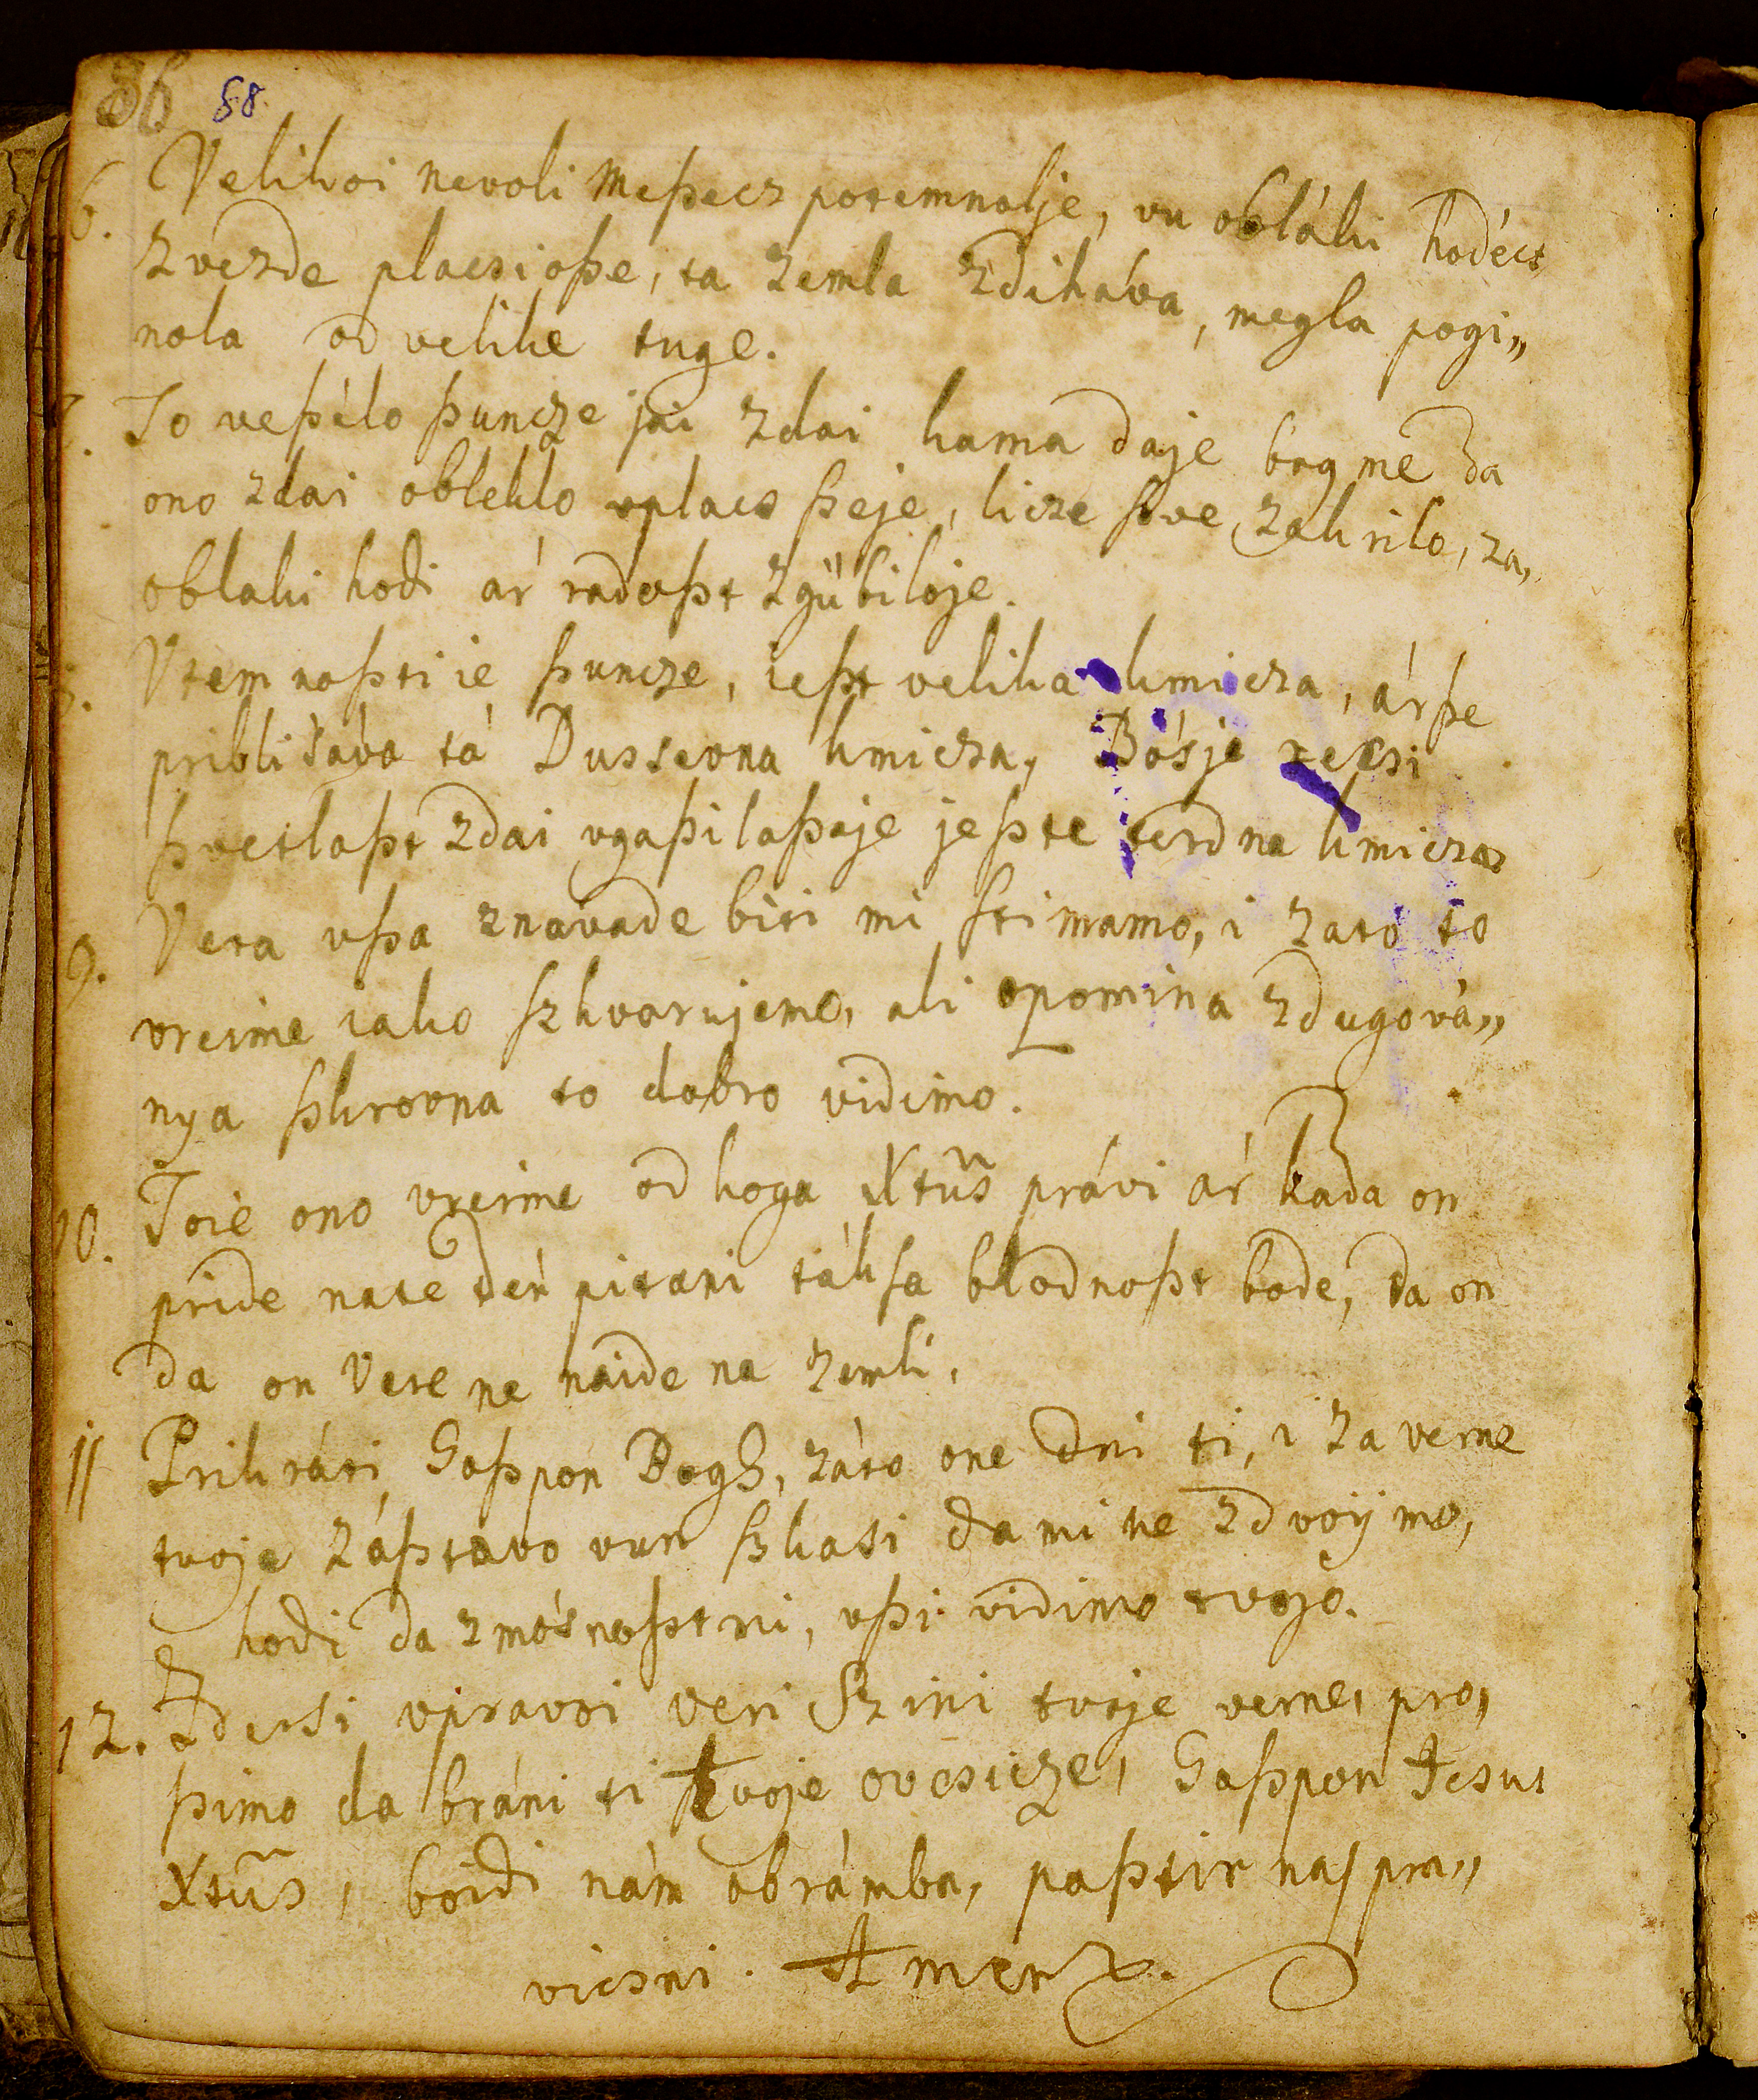 86 88.
6. Velikoi nevoli Meßecz potemnolje, vu obláki hodécs
zvezde placsioße, ta zemla zdiháva, megla pogi„
nola od velike tuge.
7. To veßélo ßuncze jai zdai kama daje bogme da
ono zdai obleklo vplacs ßeje, licze ßve zakrilo, za„
oblaki hodi ár radoßt zgübiloje.
8. Vtem noßti ie ßuncze, ießt velika kmicza, árße
priblisáva tá Dussevna kmicza, Bósje recsi
ßvetloßt zdai vgaßilaßaje jeßte terdna kmicza
9. Vera vßa znavade biti mi stimamo, i zató to
vreime iako szkvarujemo, ali opomina zdugová„
nya ßkrovna to dobro vidimo.
10. Toie ono vreime od koga Xtus právi ár kada on
pride nate den pitani táksa blodnoßt bode, da on
da on Vere ne naide na zemli.
11 Prikráti Goßpon Bogh, záto one dni ti, i za verne
tvoje záßtavo vun ßkasi da mi ne zdvoijmo,
hodi da zmósnoßtmi, vßi vidimo tvojo.
12. Zdersi vpravoi veri Szini tvoje verne, pro„
ßimo da bráni ti tvoje ovcsicze, Goßpon Jesus
Xtus, boidi nám obrámba, paßtir naj pra„
vicsni. Amen.